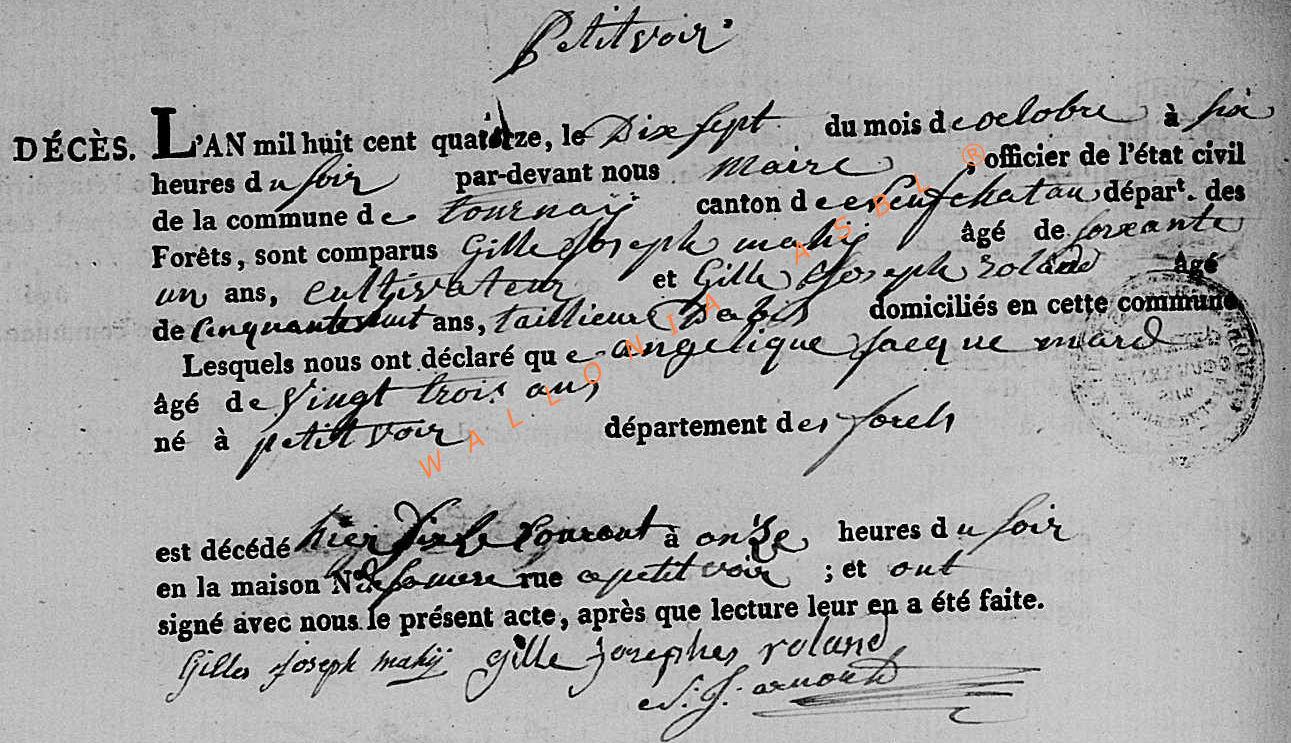 petitvoir
DÉCÈS. L'AN mil huit cent quatorze, le Dix sept du mois de octobre à six
heures du soir par-devant nous maire , officier de l'état civil
de la commune de tournaÿ canton de neufchatau départ. des
Forêts, sont comparus Gille Joseph mahij âgé de soixante
un ans, cultivateur et Gille Joseph roland âgé
de cinquante huit ans, taillieur Dabis domiciliés en cette commune
Lesquels nous ont déclaré que angelique jacque mard
âgé de vingt trois ans
né à petitvoir département des forets
est décédé hier le Courant à onze heures du soir
en la maison N° rue a petitvoir ; et ont
signé avec nous le présent acte, après que lecture leur en a été faite.
Gilles joseph mahij gille josephes roland
J. arnould
WALLONIA ASBL ®